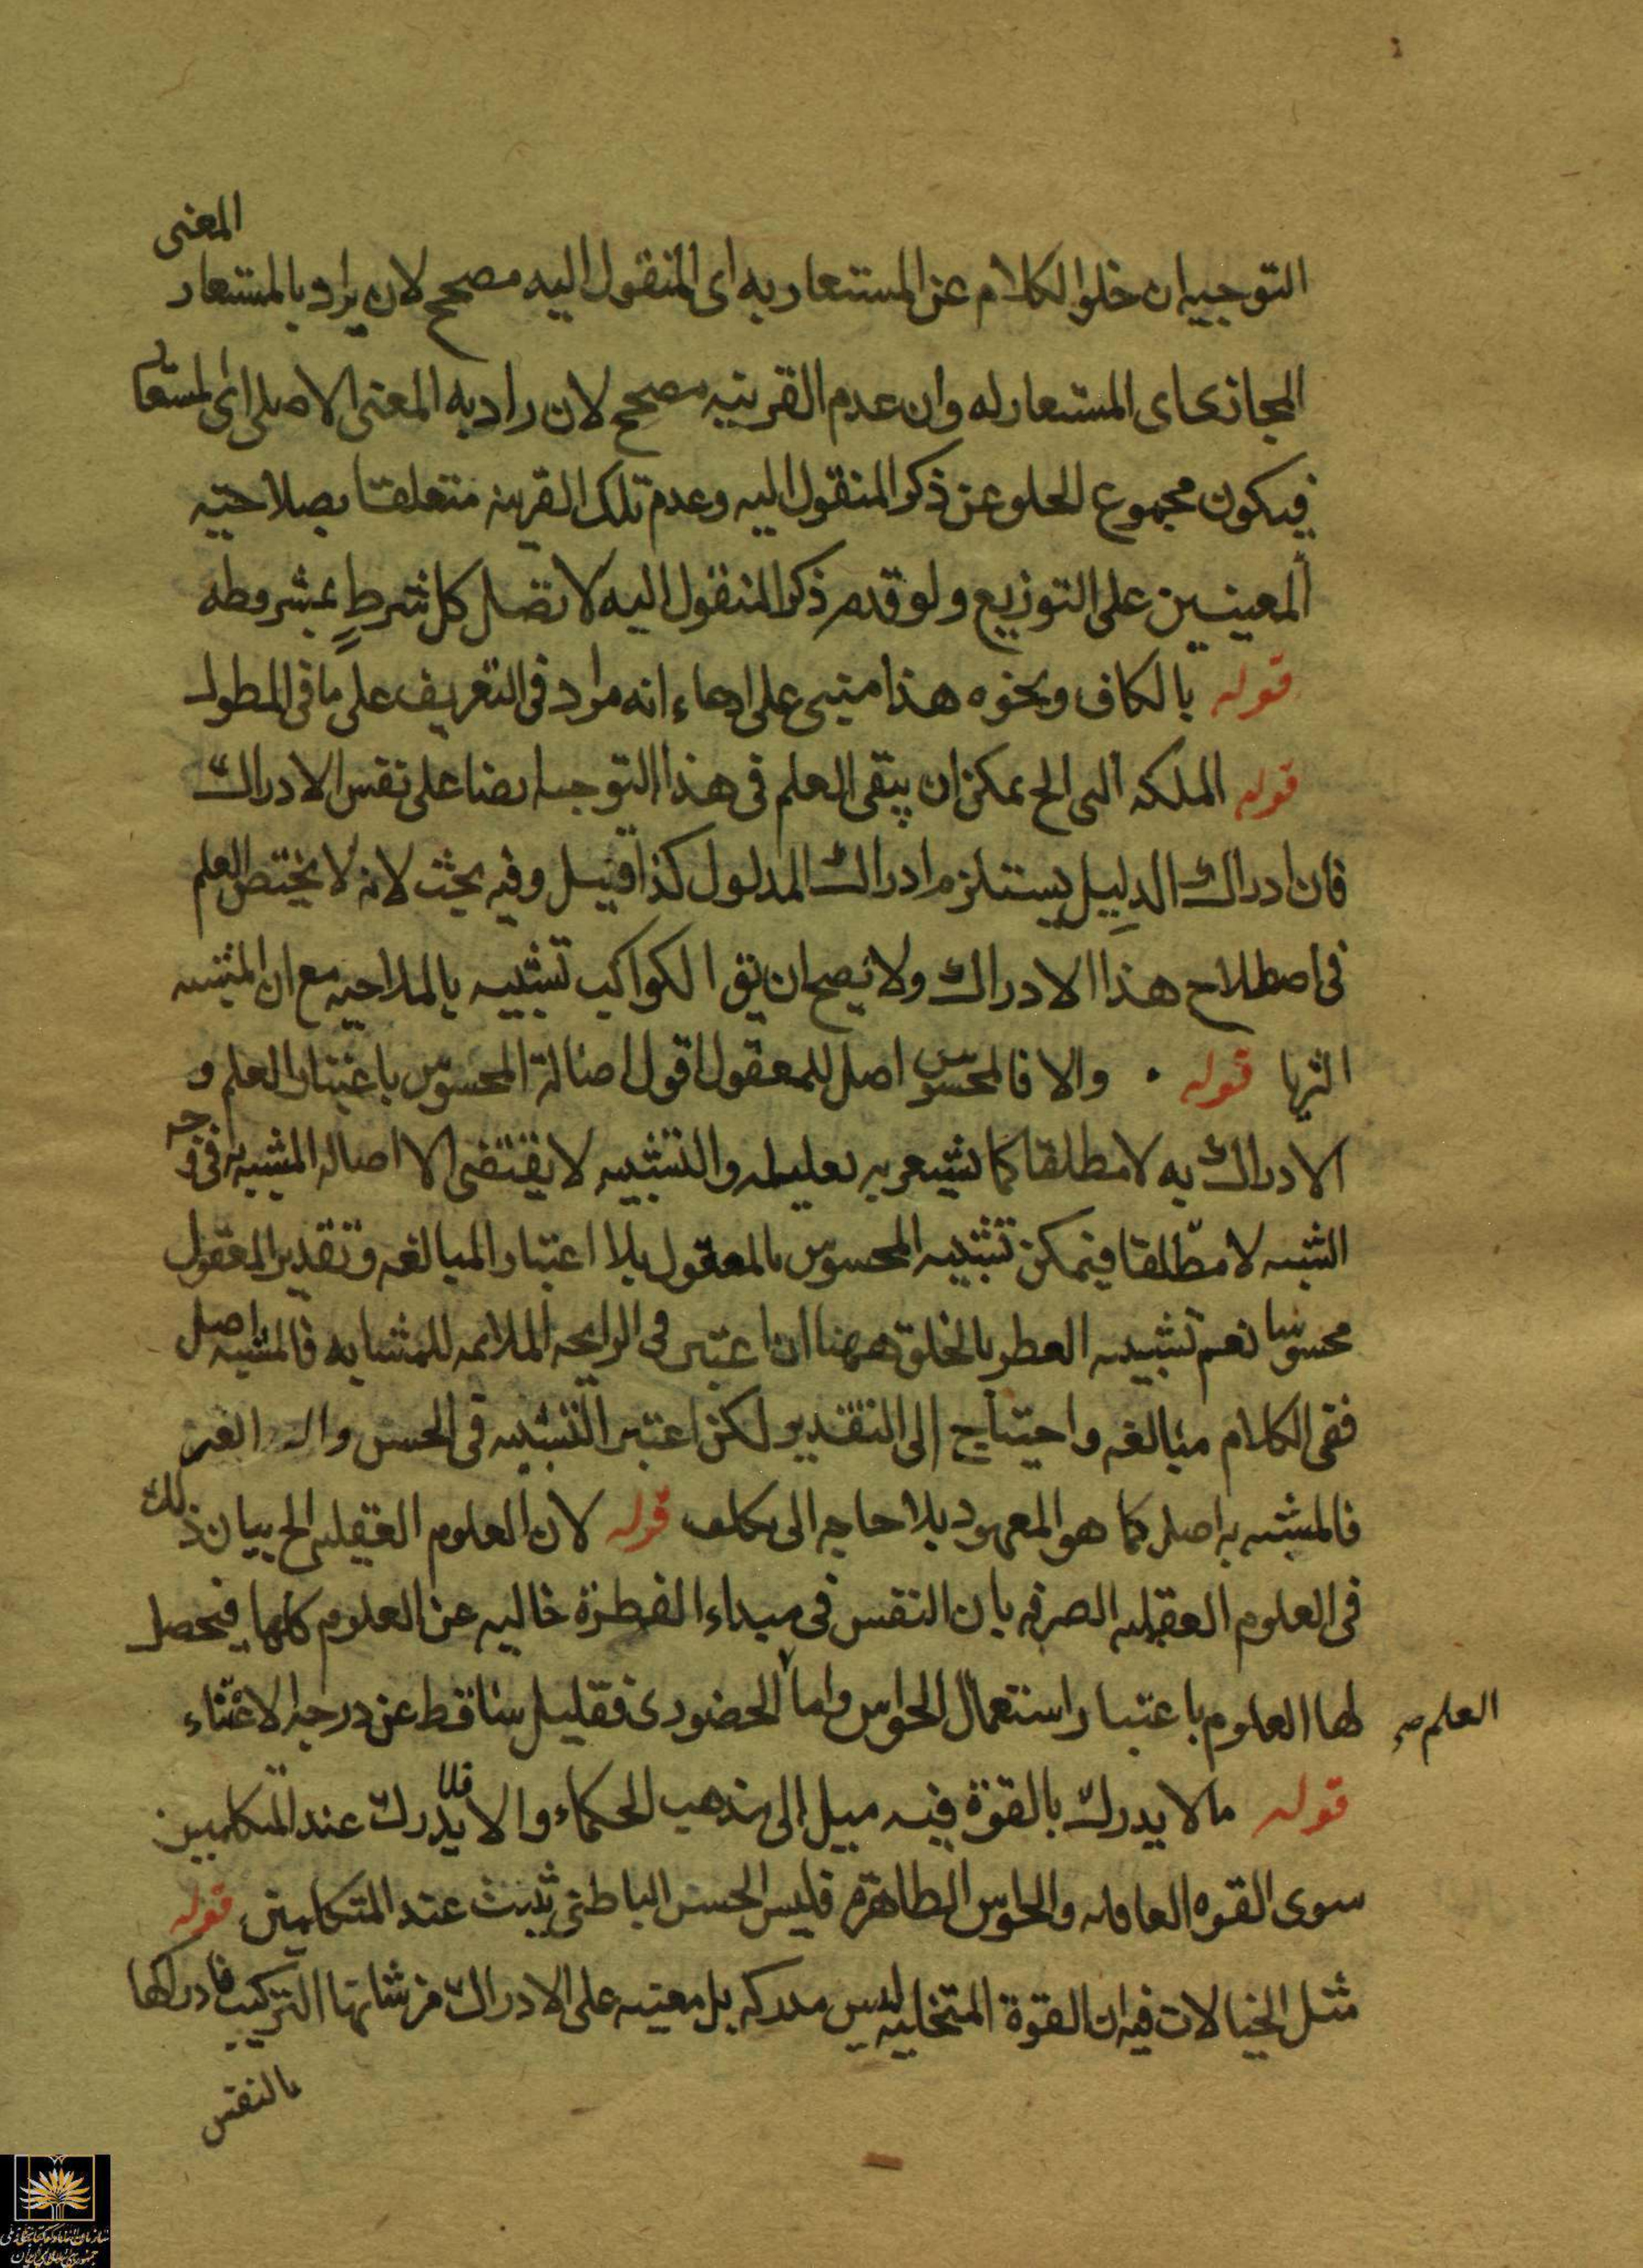 التوجيه ان خلو الكلام عن المستعار به اى المنقول اليه مصحح لان يراد بالمستعار المعنى
المجازى اى المستعار له وان عدم القرينه مصحح لان راد به المعنى الاصلى اى المستعار
فيكون مجموع الخلو عن ذكر المنقول اليه وعدم تلك القرينه متعلقا بصلاحيته
المعنيين على التوزيع ولو قدم ذكر المنقول اليه لا تصل كل شرطٍ بمشروطه
قوله بالكاف ونحوه هذا مبنى على ادعاء انه مراد فى التعريف على ما فى المطول
قوله الملكه التى الخ يمكن ان يبقى العلم فى هذا التوجيه ايضا على نفس الادراك
فان ادراك الدليل يستلزم ادراك المدلول كذا قيل وفيه بحث لانه لا يختص العلم
فى اصطلاح هذا الادراك ولا يصح ان يق الكواكب تشبيه بالملاحيه مع ان المشبه
الثريا قوله والا فالمحسوس اصل للمعقول اقول اصالة المحسوس باعتبار العلم و
الادراك به لا مطلقا كما يشعر به تعليله والتشبيه لا يقتضى الا اصاله المشبه به فى وجه
الشبه لا مطلقا فيمكن تشبيه المحسوس بالمعقول بلا اعتبار المبالغه وتقدير المعقول
محسوسا نعم تشبيه العطر بالخلق ههنا ان اعتبر فى الرايحه الملايمه للمشابه فالمشبه اصل
ففى الكلام مبالغه واحتياج الى التقدير لكن اعتبر التشبيه فى الحسن
فالمشبه به اصل كما هو المعهود بلا حاجه الى تكلف قوله لان العلوم العقليه الخ بيان ذلك
فى العلوم العقليه الصرفه بان النفس فى مبداء الفطرة خاليه عن العلوم كلها فيحصل
لها العلوم باعتبار استعمال الحواس واما الحضورى فقليل ساقط عن درجه الاعتناء
العلم صح
قوله ما لا يدرك بالقوة فيه ميل الى مذهب الحكماء والا فلا يدرك عند المتكلمين
سوى القوه العاقله والحواس الظاهرة فليس الحس الباطنى يثبت عند المتكلمين قوله
مثل الخيالات فيه ان القوة المتخليه ليس مدركه بل معينه على الادراك من شانها التركيب فادراكها
بالنفس